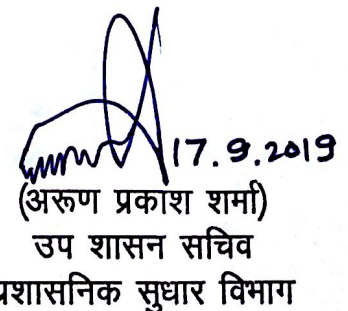 17.9.2019
(अरूण प्रकाश शर्मा)
उप शासन सचिव
प्रशासनिक सुधार विभाग